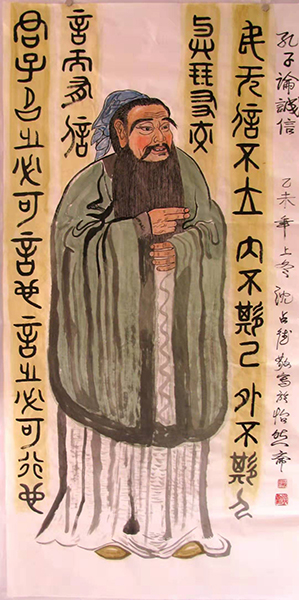 孔子論誠信
乙未年上冬沈占敬寫於怡然齋
民无信不立内不欺己外不欺人
與朋友交
言而有信
君子名之必可言也言之必可行也